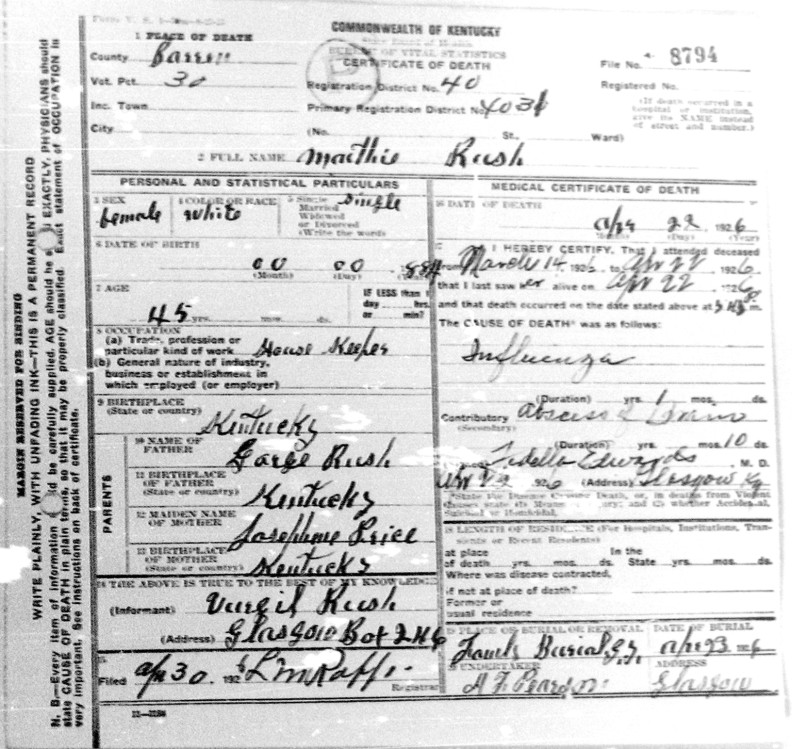 COMMONWEALTH OF KENTUCKY
State Board of Health
BUREAU OF VITAL STATISTICS
CERTIFICATE OF DEATH
1 PLACE OF DEATH
County Barren
Vot. Pct. 30
Inc. Town
City
Registration District No. 40
Primary Registration District No. 4031
(No. St., Ward)
File No. 8794
Registered No.
(If death occurred in a
hospital or institution,
give its NAME instead
of street and number.)
2 FULL NAME Mathie Rush
PERSONAL AND STATISTICAL PARTICULARS
3 SEX female
4 COLOR OR RACE White
5 Single
Married
Widowed
or Divorced
(Write the word)
Single
6 DATE OF BIRTH
00 00
(Month) (Day)
7 AGE
45 yrs. mos. ds.
IF LESS than 1
day hrs.
or min?
8 OCCUPATION
(a) Trade, profession or
particular kind of work House Keeper
(b) General nature of industry,
business or establishment in
which employed (or employer)
9 BIRTHPLACE
(State or country) Kentucky
PARENTS
10 NAME OF
FATHER Garge Rush
11 BIRTHPLACE
OF FATHER
(State or country) Kentucky
12 MAIDEN NAME
OF MOTHER Josephine Price
13 BIRTHPLACE
OF MOTHER
(State or country) Kentucky
14 THE ABOVE IS TRUE TO THE BEST OF MY KNOWLEDGE
(Informant) Vurgil Rush
(Address) Glasgow Box 246
15
Filed Apr 30 1926
Registrar
MEDICAL CERTIFICATE OF DEATH
16 DATE OF DEATH
Apr 22 1926
(Day) (Year)
17 I HEREBY CERTIFY, That I attended deceased
from March 14 1926, to Apr 22 1926
that I last saw her alive on Apr 22 1926
and that death occurred on the date stated above at m.
The CAUSE OF DEATH* was as follows:
Influenza
(Duration) yrs. 1 mos. ds.
Contributory Abscess of
(Secondary)
(Duration) yrs. mos. 10 ds.
Edwards M. D.
1926 (Address) Glasgow Ky
*State the Disease Causing Death, or, in deaths from Violent
Causes state (1) Means ; and (2) whether Accidental,
Suicidal or Homicidal.
18 LENGTH OF RESIDENCE (For Hospitals, Institutions, Transients
or Recent Residents)
at place In the
of death yrs. mos. ds. State yrs. mos. ds.
Where was disease contracted,
if not at place of death?
Former or
usual residence
19 PLACE OF BURIAL OR REMOVAL DATE OF BURIAL
Apr 23 1926
UNDERTAKER ADDRESS
Glasgow
MARGIN RESERVED FOR BINDING
WRITE PLAINLY, WITH UNFADING INK—THIS IS A PERMANENT RECORD
N. B.—Every item of information should be carefully supplied. AGE should be stated EXACTLY. PHYSICIANS should
state CAUSE OF DEATH in plain terms, so that it may be properly classified. Exact statement of OCCUPATION is
very important. See instructions on back of certificate.